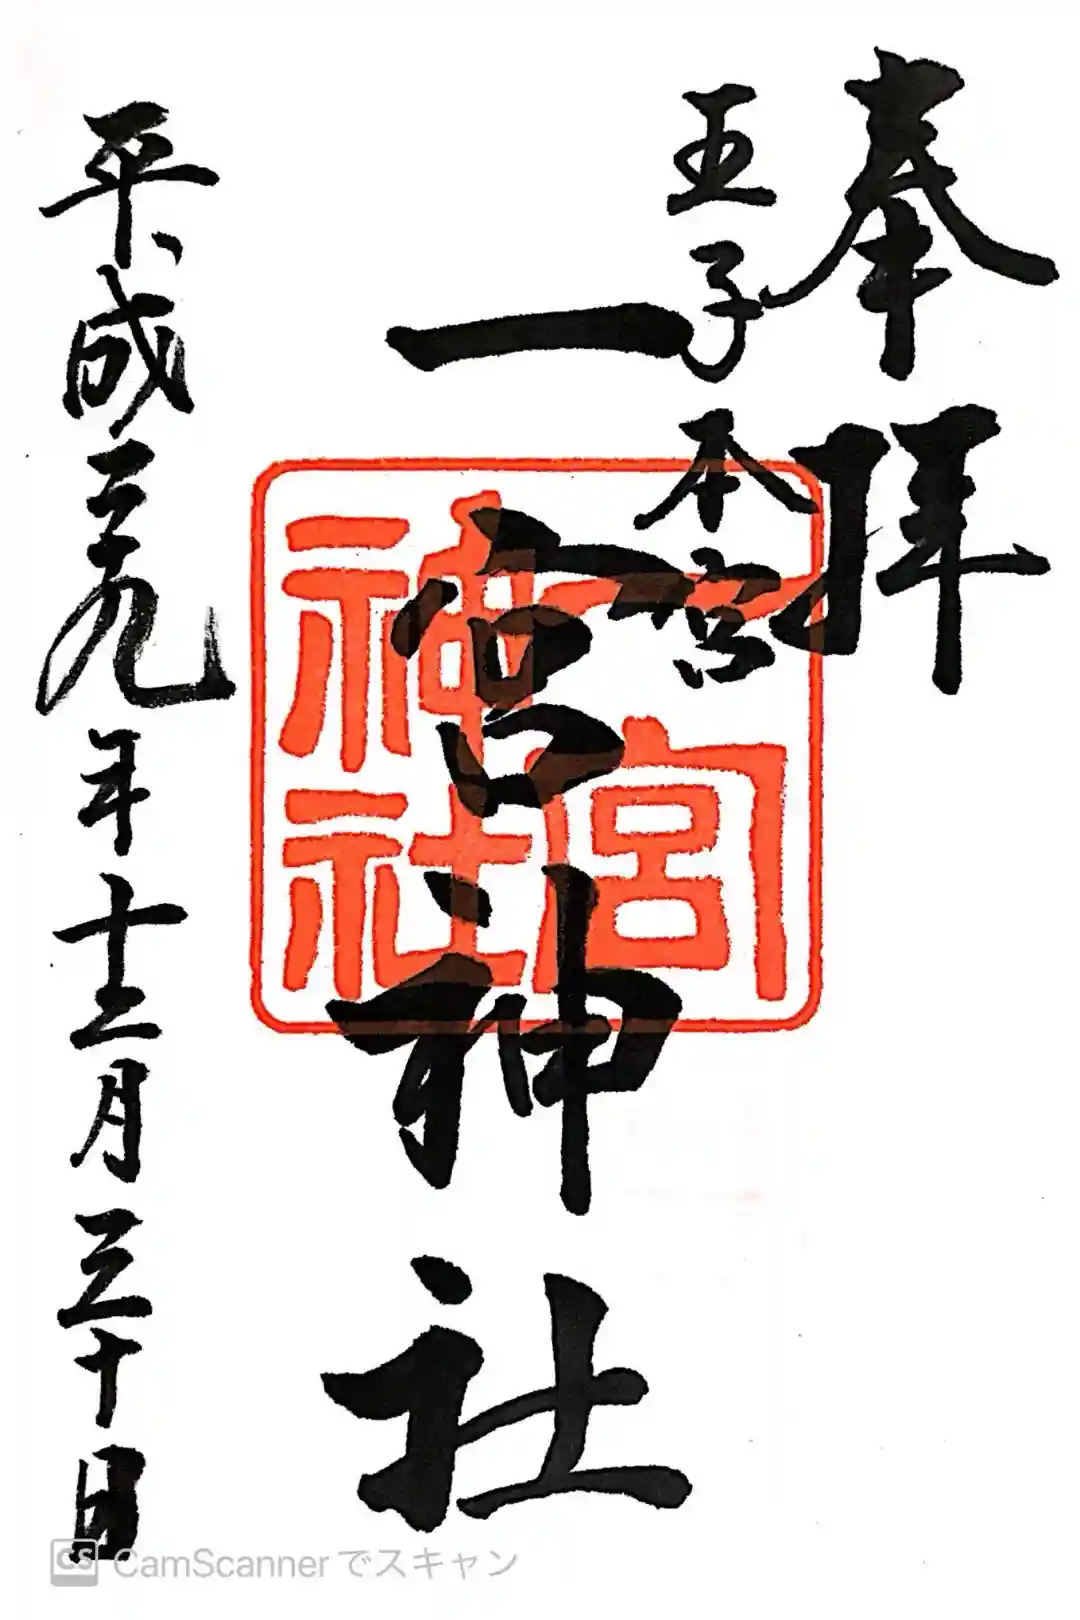 奉拝
五子本宮
一宮神社
宮神社
平成二十九年十二月三十日
CS CamScannerでスキャン